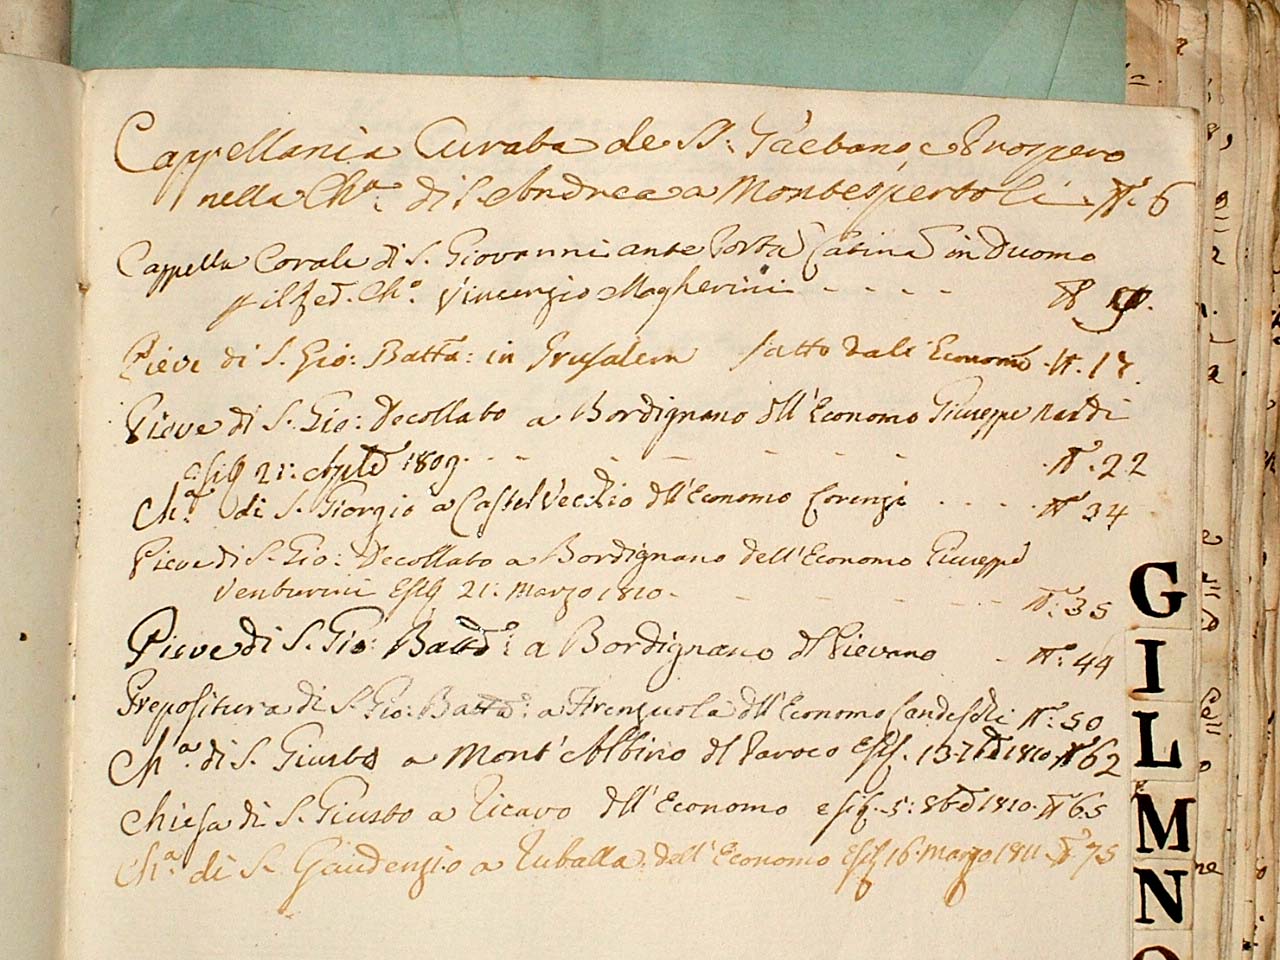 Cappellania Curata de SS: Gaetano, e Prospero
nella Ch.a di S. Andrea a Montespertoli. N.o 6
Cappella Corale di S. Giovanni ante Portā Latinā in Duomo
Ch.o Vincenzio Magherini - - - - N.o
Pieve di S. Gio: Batta: in Jrusalem fatto dall' Economo N.o 17.
Pieve di S. Gio: Decollato a Bordignano dll'Economo Giuseppe Nardi
esig 21: 1809. - - - - - - N.o 22
Ch.a di S. Giorgio a Castel Vecchio dll'Economo Lorenzi . . . . N.o 34
Pieve di S. Gio: Decollato a Bordignano dell'Economo Giuseppe
Venturini Esig 21: Marzo 1810 - - - - - N.o 35
Pieve di S. Gio: Batta: a Bordignano dl Pievano - N.o: 44
Prepositura di S. Gio: Batta: a Firenzuola dll'Economo N.o: 50
Ch.a di S. Giusto a Mont'Albino dl Paroco Esig. 13. 1810. N.o 62
Chiesa di S. Giusto a Ticavo dll'Economo esig. 5: 8bre 1810. N.o 65
Ch.a di S. Gaudenzio a Ruballa dell'Economo Esig 16 Marzo 1811. N.o 75
G
I
L
M
N